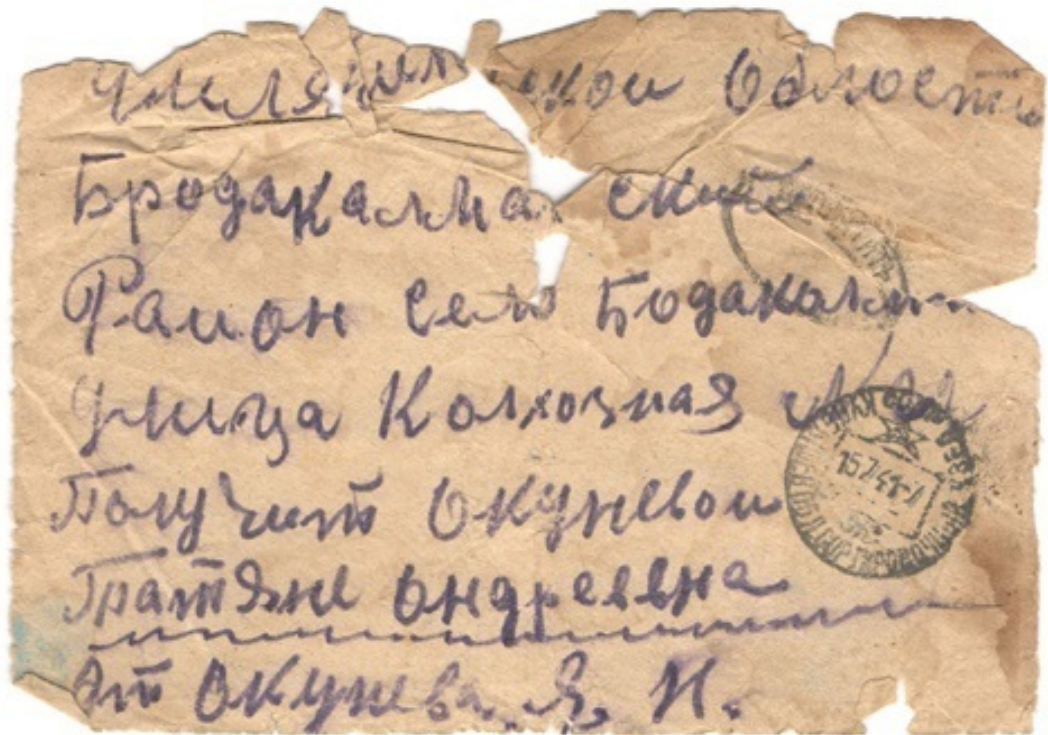 Области
Бродакалма ский
Район село Бодакалм
улица Колхозная
Получит Окуневои
Тратяне Ондреевна
От Окунева Я. Н.
15.7.41